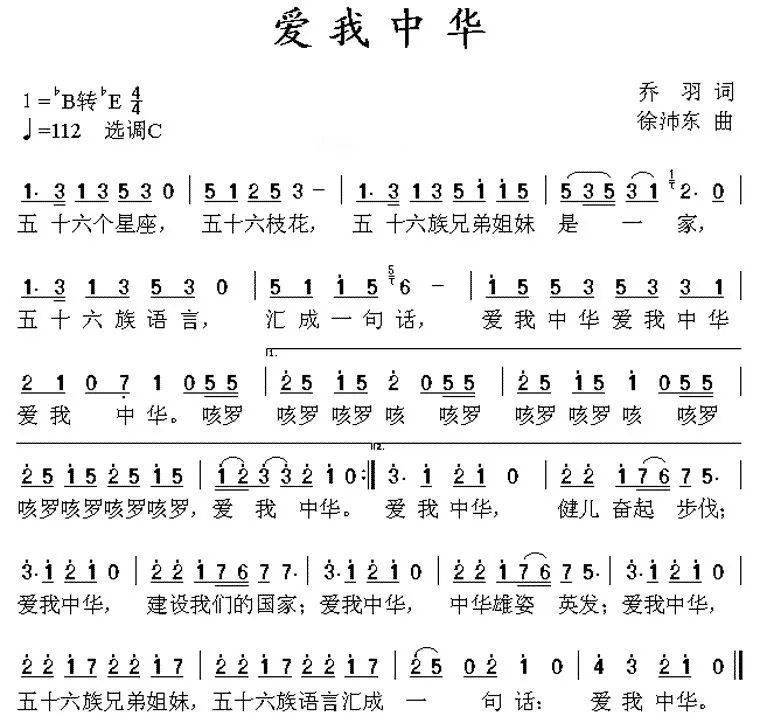 爱我中华
1=♭B转♭E 4/4
乔 羽 词
♩=112 选调C
徐沛东 曲
1. 3 1 3 5 3 0 | 5 1 2 5 3 - | 1. 3 1 3 5 1 1 5 | 5 3 5 3 1 2. 0 |
五 十六个星座, 五十六枝花, 五 十六族兄弟姐妹 是 一 家,
1. 3 1 3 5 3 0 | 5 1 1 5 6 - | 1 5 5 3 5 3 3 1 |
五 十 六 族 语 言, 汇 成 一 句 话, 爱 我 中 华 爱 我 中 华
1.
2 1 0 7 1 0 5 5 | 2 5 1 5 2 0 5 5 | 2 5 1 5 1 0 5 5 |
爱 我 中 华。 咳罗 咳罗 咳罗 咳 咳罗 咳罗 咳罗 咳 咳罗
2.
2 5 1 5 2 5 1 5 | 1 2 3 3 2 1 0 :‖ 3. 1 2 1 0 | 2 2 1 7 6 7 5. |
咳罗咳罗咳罗咳罗, 爱 我 中华。 爱 我 中华, 健儿 奋起 步伐;
3. 1 2 1 0 | 2 2 1 7 6 7 7. | 3. 1 2 1 0 | 2 2 1 7 6 7 5. | 3. 1 2 1 0 |
爱我中华, 建设我们的国家; 爱我中华, 中华雄姿 英发; 爱我中华,
2 2 1 7 2 2 1 7 | 2 2 1 7 2 2 1 7 | 2 5 0 2 1 0 | 4 3 2 1 0 ‖
五十六族兄弟姐妹, 五十六族语言汇成 一 句 话: 爱 我 中华。